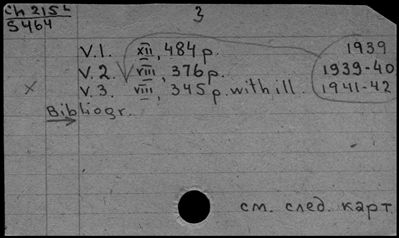 Ch 215L 3
S464
V.1. XII, 484 p. 1939
V.2. VIII, 376 p. 1939-40
x V.3. VIII, 345 p. with ill. 1941-42
Bibliogr.
см. след. карт